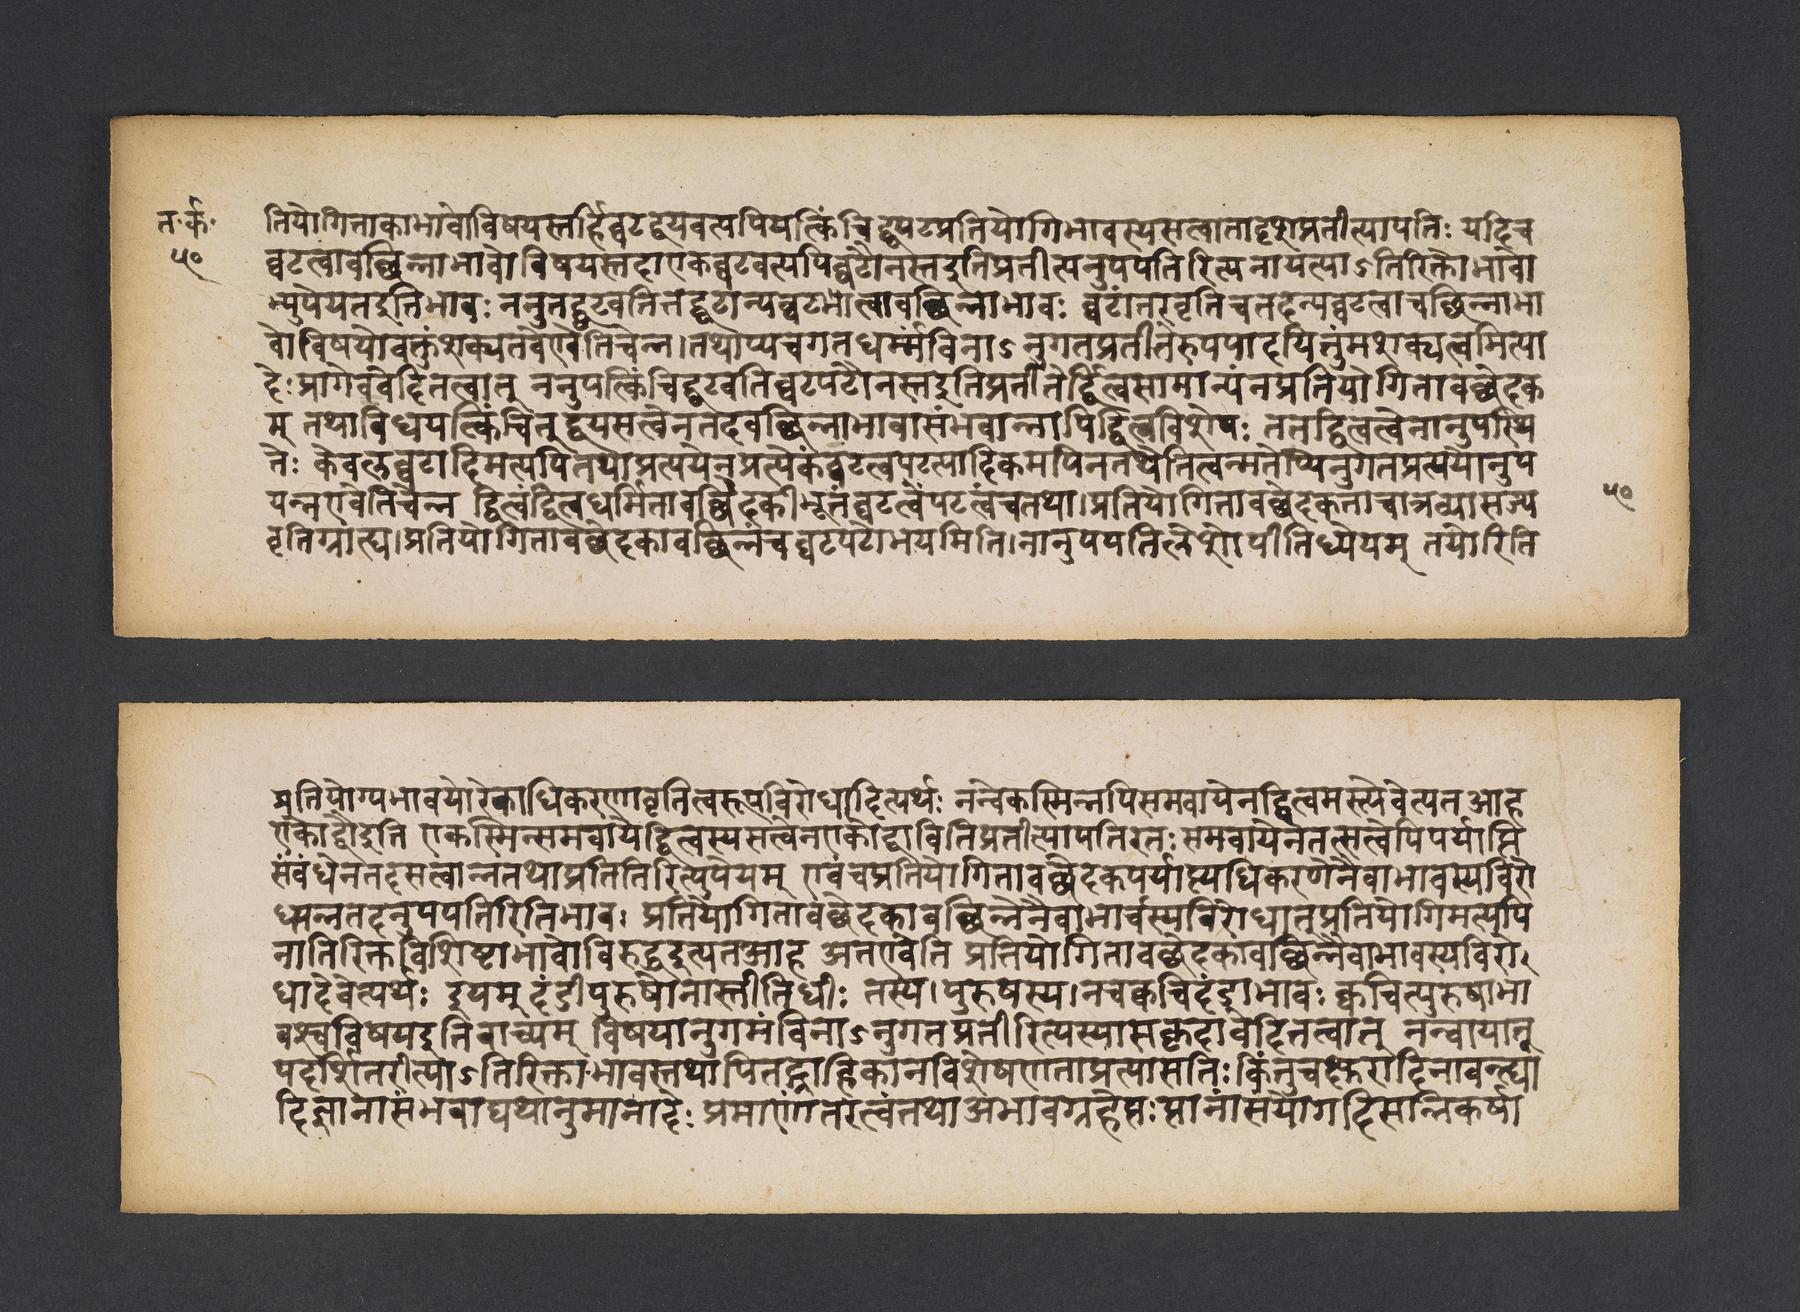 त॰र्क॰
५०
तियोगिताकाभावोविषयस्तर्हिघटद्वयवत्यपियत्किंचिद्घटप्रतियोगिभावस्यसत्वात्तादृशप्रतीत्यापत्तिः यदिच
घटत्वावछिन्नाभावोविषयस्तदाएकघटवत्यपिघटौनस्तइतिप्रतीत्यनुपपत्तिरित्यनायत्याऽतिरिक्तोभावो
भ्युपेयतइतिभावः ननुतद्घटवतितद्घटान्यघटभोत्वावछिन्नाभावः घटांतरवृत्तिचतदन्यघटत्वावछिन्नाभा
वोविषयोवक्तुंशक्यतवेएवेतिचेन्न।तथाप्यचगतधर्म्मंविनाऽनुगतप्रतीतेरुपपादयितुमशक्यत्वमित्या
देः प्रागेववेदितत्वात् ननुयत्किंचिद्घटवतिघटपटौनस्तइतिप्रतीतेर्द्वित्वसामान्यंनप्रतियोगितावछेदक
म् तथाविधयत्किंचित् द्वयसत्वेनतदवछिन्नाभावासंभवान्नापिद्वित्वविशेषः तत्तद्द्वित्वत्वेनानुपस्थि
तेः केवलघटादिमत्यपितथाप्रत्ययेनप्रत्येकंघटत्वपटत्वादिकमपिनतथेतित्वन्मतेप्यनुगतप्रत्ययानुप
पन्नएवेतिचेन्न द्वित्वंद्वित्वधर्मितावछेदकीभूतंघटत्वंपटत्वंचतथा।प्रतियोगितावछेदकताचात्रव्यासज्य
५०
वृत्तिग्राह्य।प्रतियोगितावछेदकावछिन्नंचघटपटोभयमिति।नानुपपत्तिलेशोपीतिध्येयम् तयोरिति
प्रतियोग्यभावयोरेकाधिकरणावृतित्वरूपविरोधादित्यर्थः नन्वेकस्मिन्नपिसमवायेनद्वित्वमस्त्येवेत्यतआह
एकोद्वौइति एकस्मिन्समवायेद्वित्वस्यसत्वेनएकोद्वावितिप्रतीत्यापत्तिरतः समवायेनतत्सत्वेपिपर्याप्ति
संबंधेनतदसत्वान्नतथाप्रतितिरित्युपेयम् एवंचप्रतियोगितावछेदकपर्याप्त्यधिकरणेनैवाभावस्यविरो
धान्नतदनुपपत्तिरितिभावः प्रतियोगितावछेदकावछिन्नेनैवाभावस्यविरोधात्प्रतियोगिमत्यपि
नातिरिक्तविशिष्टाभावोविरुद्धइत्यतआह अतएवेति प्रतियोगितावछेदकावछिन्नैवाभावस्यविरो।
धादेवेत्यर्थः इयम् दंडीपुरुषोनास्तीतिधीः तस्य।पुरुषस्य।नचक्वचिदंडाभावः क्वचित्पुरुषाभा
वश्चविषयइतिवाच्यम् विषयानुगमंविनाऽनुगतप्रतीरित्यस्यासकृदावेदितत्वात् नन्वायात्
पदर्शितरीत्याऽतिरिक्ताभावस्तथापितद्ग्राहिकानविशेषणताप्रत्यासत्तिः किंतुचक्षुरादिनावन्ह्या
दिज्ञानासंभवाद्यथानुमानादेः प्रमाणंगतरत्वंतथाअभावग्रहेप्तः प्तानांसंयोगदिसन्निकर्षा